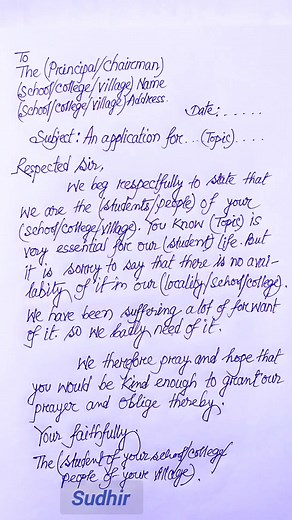 To
The (Principal/Chairman)
(School/college/village) Name
(School/college/village) Address.
Date:......
Subject: An application for...(Topic)....
Respected Sir,
We beg respectfully to state that
we are the (students/people) of your
(school/college/village). You know (Topic) is
very essential for our (student) life. But
it is sorry to say that there is no avai-
lability of it in our (locality/school/college).
We have been suffering a lot of for want
of it. So we badly need of it.
We therefore pray and hope that
you would be kind enough to grant our
prayer and oblige thereby.
Your faithfully,
The (student of your school/college/
people of your village).
Sudhir